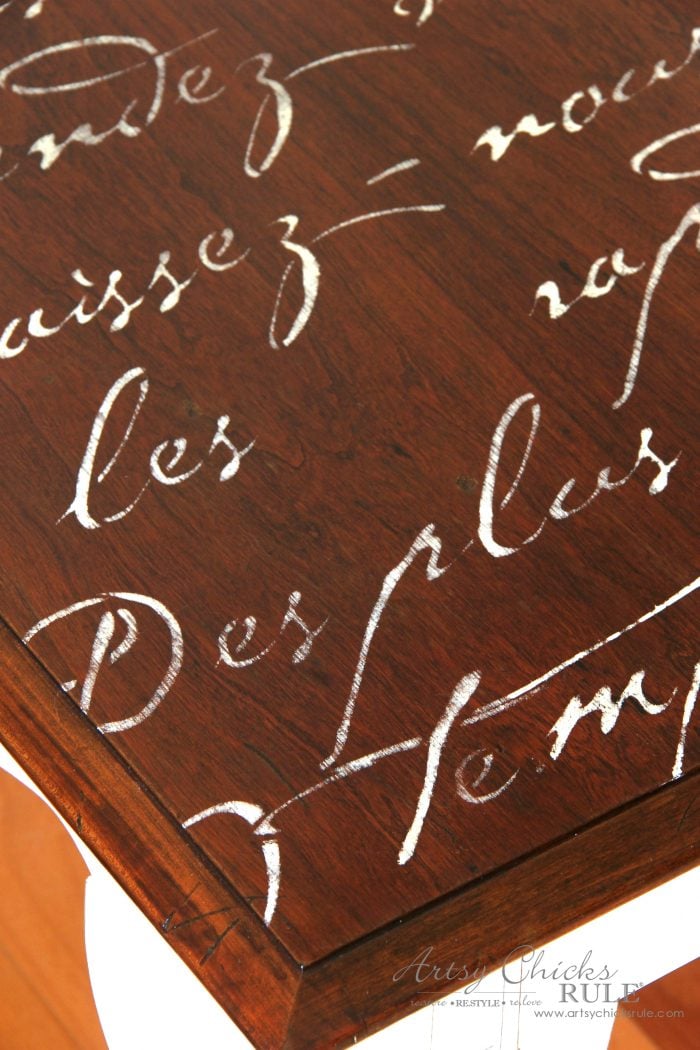 ndez nous
aissez rap
les
Des plus
Temp
Artsy Chicks
RULE®
restore • RESTYLE • relove
www.artsychicksrule.com